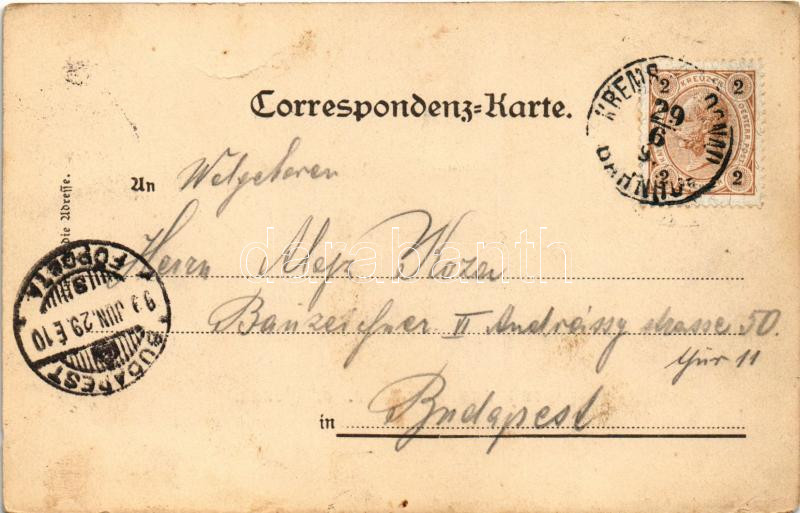 Correspondenz-Karte.
KREMS DONAU
29
6
9
BAHNHOF
2 KREUZER 2
2 2
die Adresse.
An Wolgeboren
Herrn Alex Kozen
Bauzeichner II Andrássy strasse 50.
Thür 11
in Budapest
BUDAPEST
99 JUN. 29. É 10
FŐPOSTA
darabanth